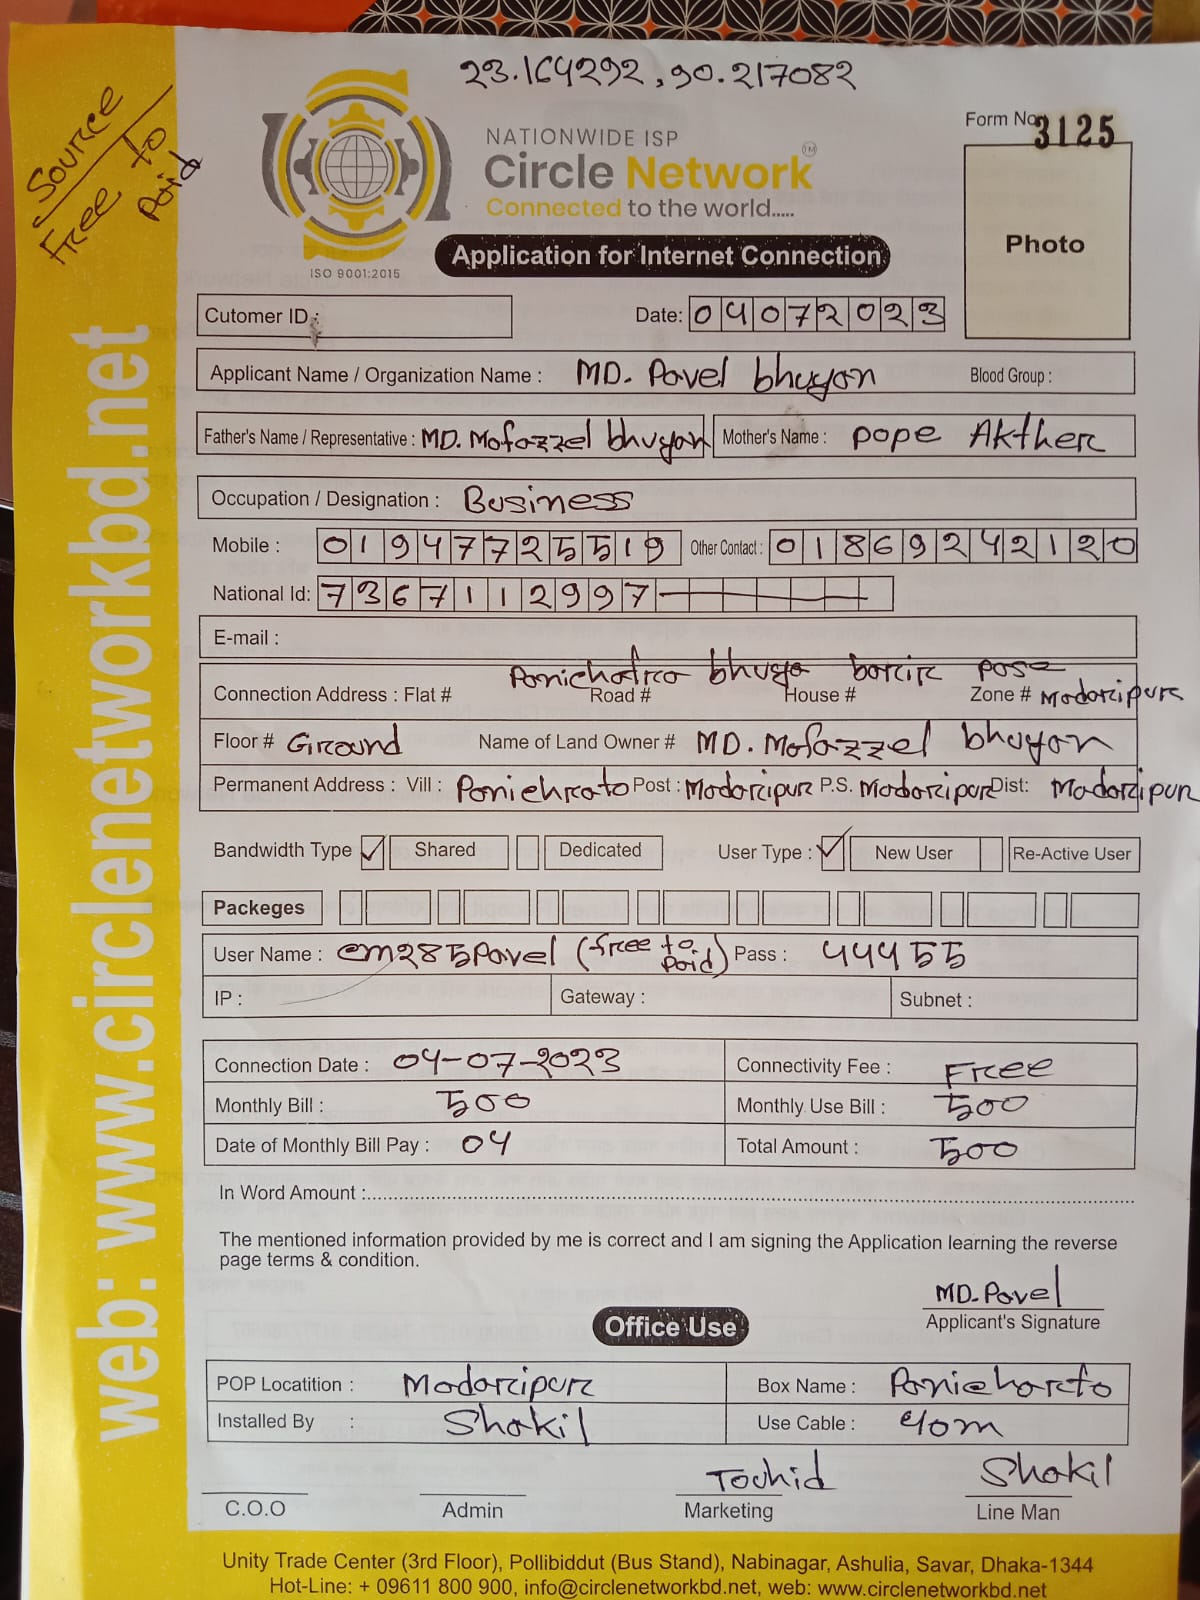 23.164292, 90.217082
Source
Free to
paid
NATIONWIDE ISP
Circle Network TM
Connected to the world.....
ISO 9001:2015
Form No. 3125
Photo
Application for Internet Connection
Cutomer ID :
Date: 04072023
Applicant Name / Organization Name : MD. Pavel bhuyan Blood Group :
Father's Name / Representative : MD. Mofazzel bhuyan Mother's Name : pope Akther
Occupation / Designation : Business
Mobile : 01947725519 Other Contact : 01869242120
National Id: 7367112997
E-mail :
bhuya barir pase
Connection Address : Flat # Road # House # Zone # Madaripur
Floor # Ground Name of Land Owner # MD. Mofazzel bhuyan
Permanent Address : Vill : Panichrato Post : Madaripur P.S. Madaripur Dist: Madaripur
Bandwidth Type ✓ Shared Dedicated User Type : ✓ New User Re-Active User
Packeges
User Name : cm285Pavel (free to paid) Pass : 44455
IP : Gateway : Subnet :
Connection Date : 04-07-2023 Connectivity Fee : Free
Monthly Bill : 500 Monthly Use Bill : 500
Date of Monthly Bill Pay : 04 Total Amount : 500
In Word Amount :
The mentioned information provided by me is correct and I am signing the Application learning the reverse
page terms & condition.
MD. Pavel
Applicant's Signature
Office Use
POP Locatition : Madaripur Box Name : Panicharto
Installed By : Shakil Use Cable : 40m
Touhid Shakil
C.O.O Admin Marketing Line Man
Unity Trade Center (3rd Floor), Pollibiddut (Bus Stand), Nabinagar, Ashulia, Savar, Dhaka-1344
Hot-Line: + 09611 800 900, info@circlenetworkbd.net, web: www.circlenetworkbd.net
web: www.circlenetworkbd.net